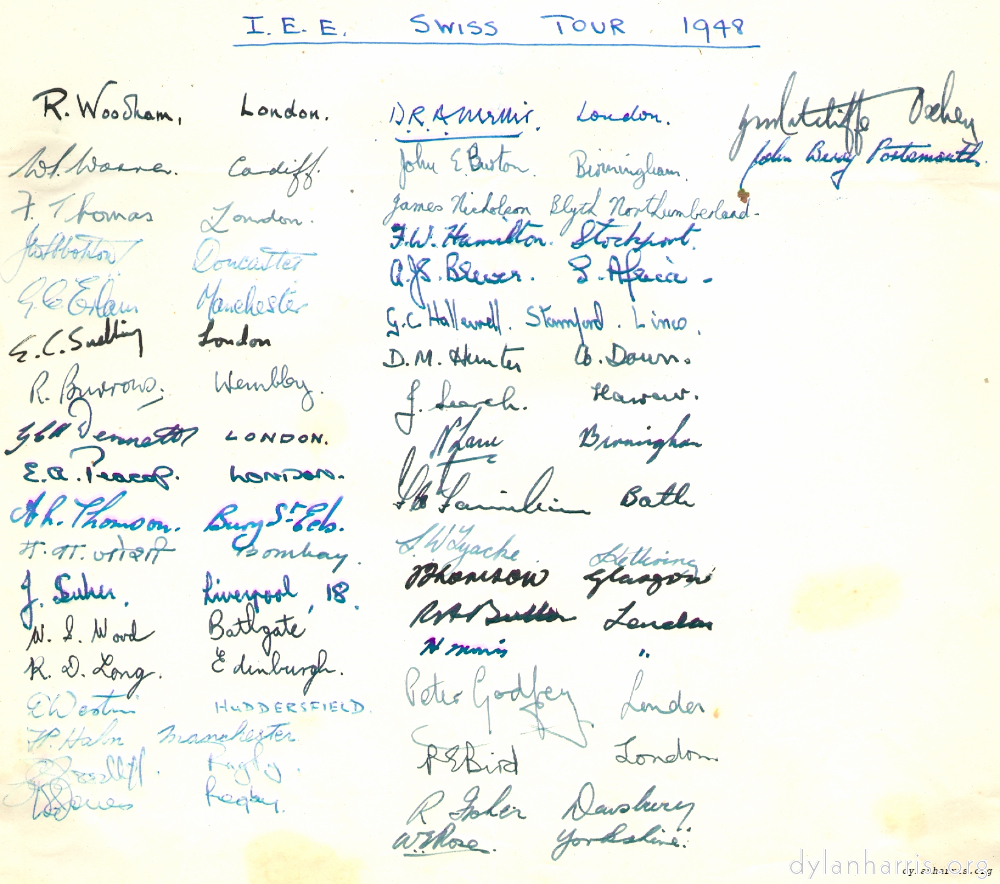 I.E.E. SWISS TOUR 1948
R. Woodham, London.
W. Cardiff.
F. Thomas London.
Doncaster
Manchester
E.C. Snelling London
R. Burrows. Wembley.
Dennett LONDON.
E.A. Peacop. LONDON.
A.L. Thomson. Bury St Eds.
Bombay.
J. Suher. Liverpool, 18.
W. S. Wood Bathgate
K. D. Long. Edinburgh.
HUDDERSFIELD.
H. Hahn Manchester
Rugby.
Jones Rugby.
D.R.A. Mellis. London.
John E Burton. Birmingham.
James Nicholson Blyth Northumberland.
F.W. Hamilton. Stockport.
A.J.S. Brewer. S. Africa.
G.C. Hallewell. Stamford. Lincs.
D.M. Hunter Co. Down.
J. Search. Harrow.
Birmingham
Bath
L.W. Tyacke Kettering
Thomson Glasgow
R.A. Butler London
H Morris "
Peter Godfrey London
R E Bird London
R Fisher Dewsbury
W E Rose. Yorkshire.
Ratcliffe Oxhey
John Berry Portsmouth.
dylanharris.org
dylanharris.org